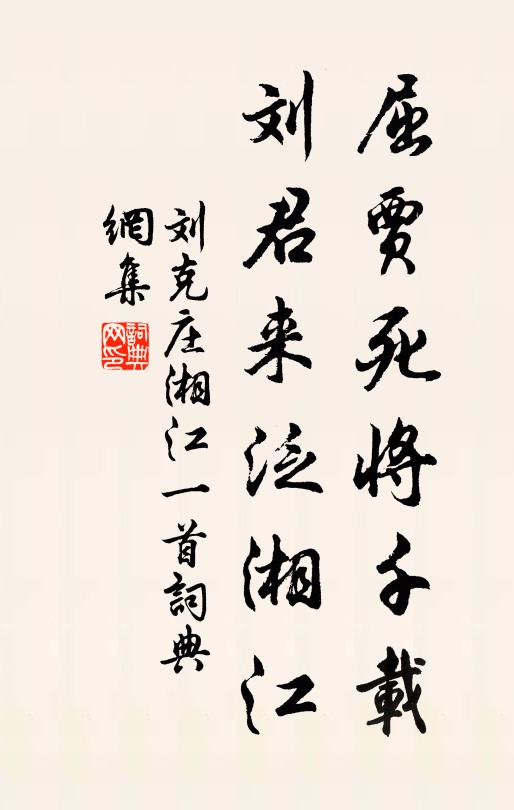 屈賈死将千載
刘君来泛湘江
刘克庄湘江一首詞典
網集
詞典网印